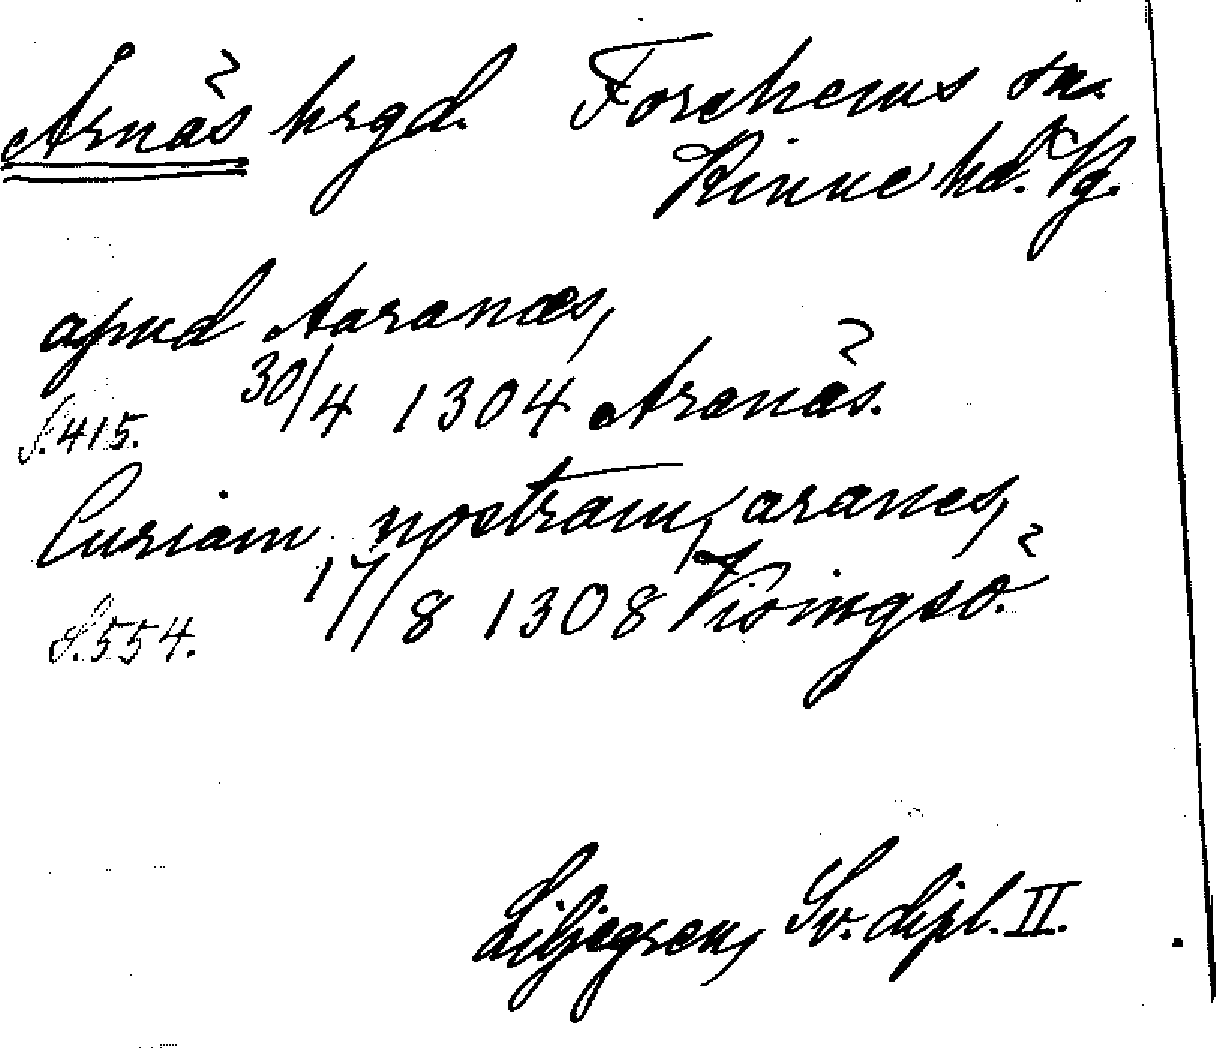 Årnäs hrgd. Forshems sn.
Kinne hd. Vg.
apud Aaranæs,
30/4 1304 Arenäs.
S. 415.
Curiam nostram, aranes,
17/8 1308 Visingsö.
S. 554.
Liljegren, Sv. dipl. II.